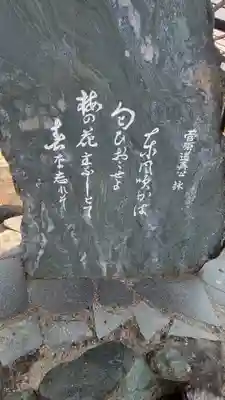 菅原道真公 詠
東風吹かは
匂ひおこせよ
梅の花 主なしとて
春な忘れそ